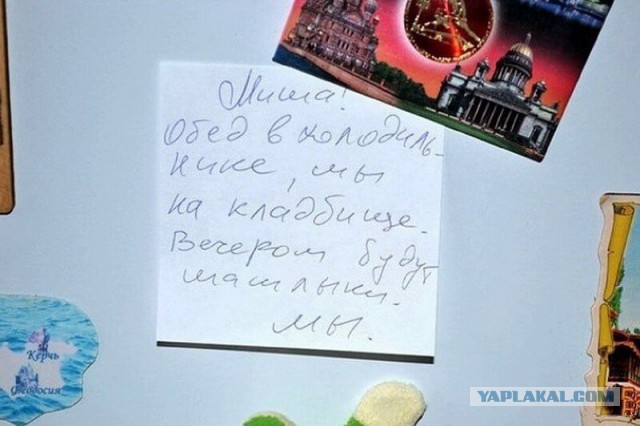 Миша!
Обед в холодиль-
нике, мы
на кладбище.
Вечером будут
шашлыки.
Мы.
Керчь
Феодосия
YAPLAKAL.COM